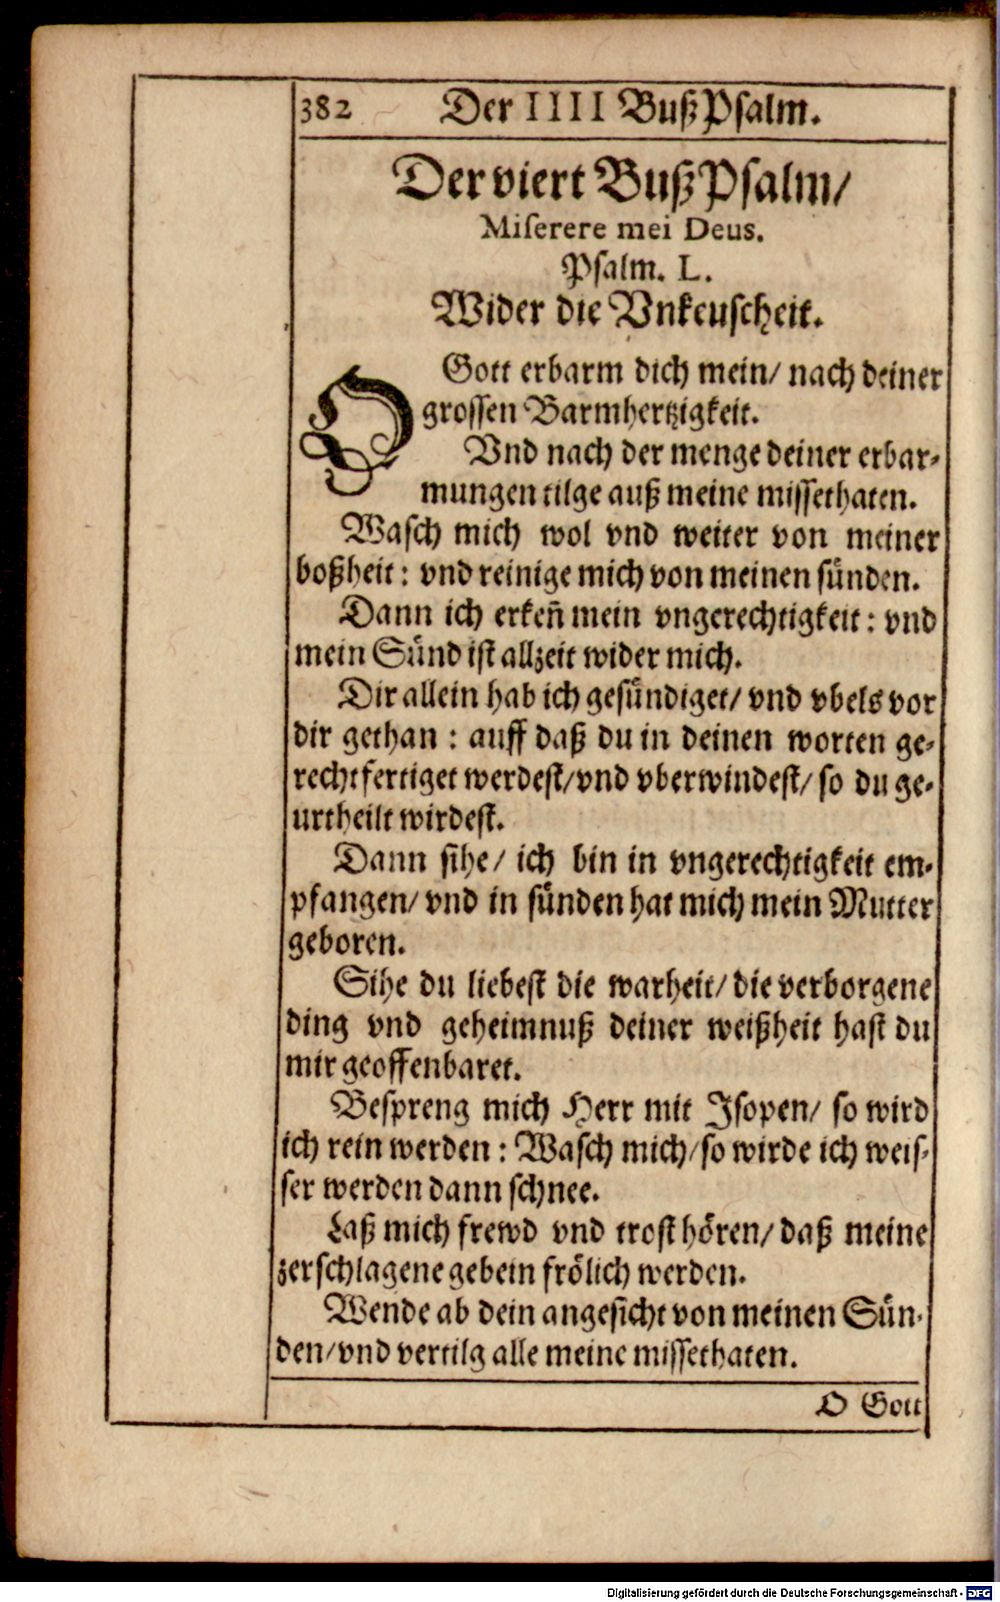 382 Der IIII BußPsalm.
Der viert BußPsalm/
Miserere mei Deus.
Psalm. L.
Wider die Vnkeuscheit.
O Gott erbarm dich mein/ nach deiner
grossen Barmhertzigkeit.
Vnd nach der menge deiner erbar-
mungen tilge auß meine missethaten.
Wasch mich wol vnd weiter von meiner
boßheit: vnd reinige mich von meinen sünden.
Dann ich erkeñ mein vngerechtigkeit: vnd
mein Sünd ist allzeit wider mich.
Dir allein hab ich gesündiget/ vnd vbels vor
dir gethan: auff daß du in deinen worten ge-
rechtfertiget werdest/ vnd vberwindest/ so du ge-
urtheilt wirdest.
Dann sihe/ ich bin in vngerechtigkeit em-
pfangen/ vnd in sünden hat mich mein Mutter
geboren.
Sihe du liebest die warheit/ die verborgene
ding vnd geheimnuß deiner weißheit hast du
mir geoffenbaret.
Bespreng mich Herr mit Isopen/ so wird
ich rein werden: Wasch mich/ so wirde ich weis-
ser werden dann schnee.
Laß mich frewd vnd trost hören/ daß meine
zerschlagene gebein frölich werden.
Wende ab dein angesicht von meinen Sün-
den/ vnd vertilg alle meine missethaten.
O Gott
Digitalisierung gefördert durch die Deutsche Forschungsgemeinschaft - DFG